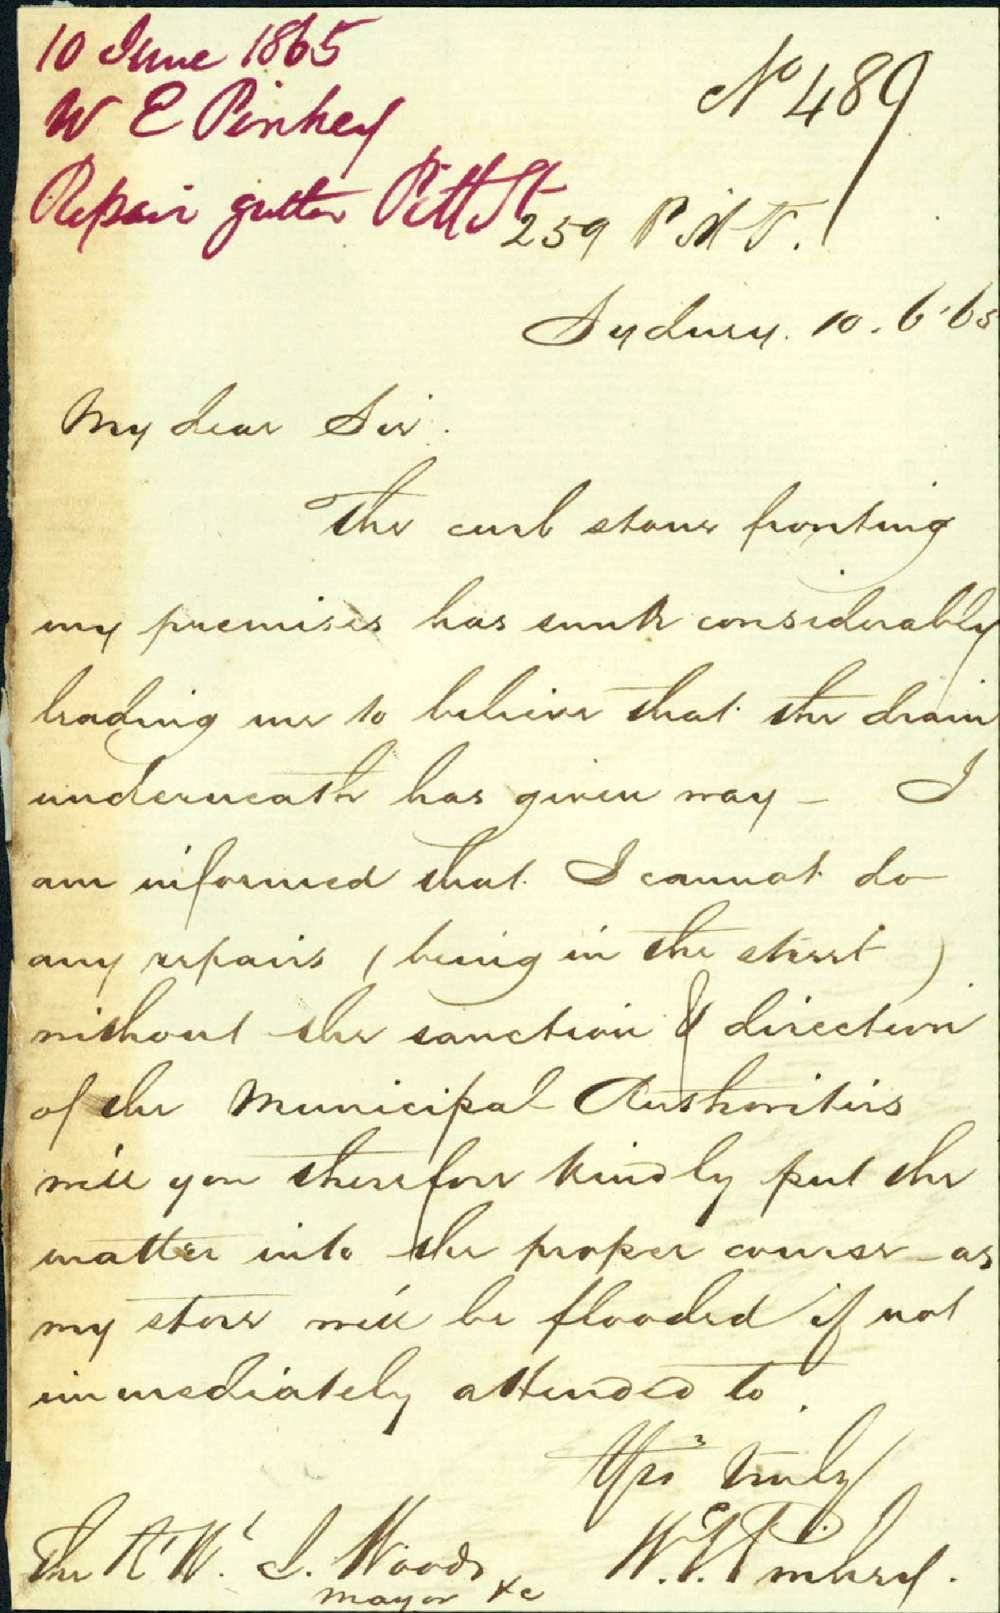 10 June 1865
W E Pinhey
Repair gutter Pitt St
No 489
259 Pitt St.
Sydney. 10. 6. 65
My dear Sir.
The curb stone fronting
my premises has sunk considerably
leading me to believe that the drain
underneath has given way – I
am informed that I cannot do
any repairs (being in the street)
without the sanction & direction
of the Municipal Authorities
will you therefore kindly put the
matter into the proper course – as
my store will be flooded if not
immediately attended to
Yrs truly
W. E. Pinhey.
The Rt Wl J. Woods
Mayor &c